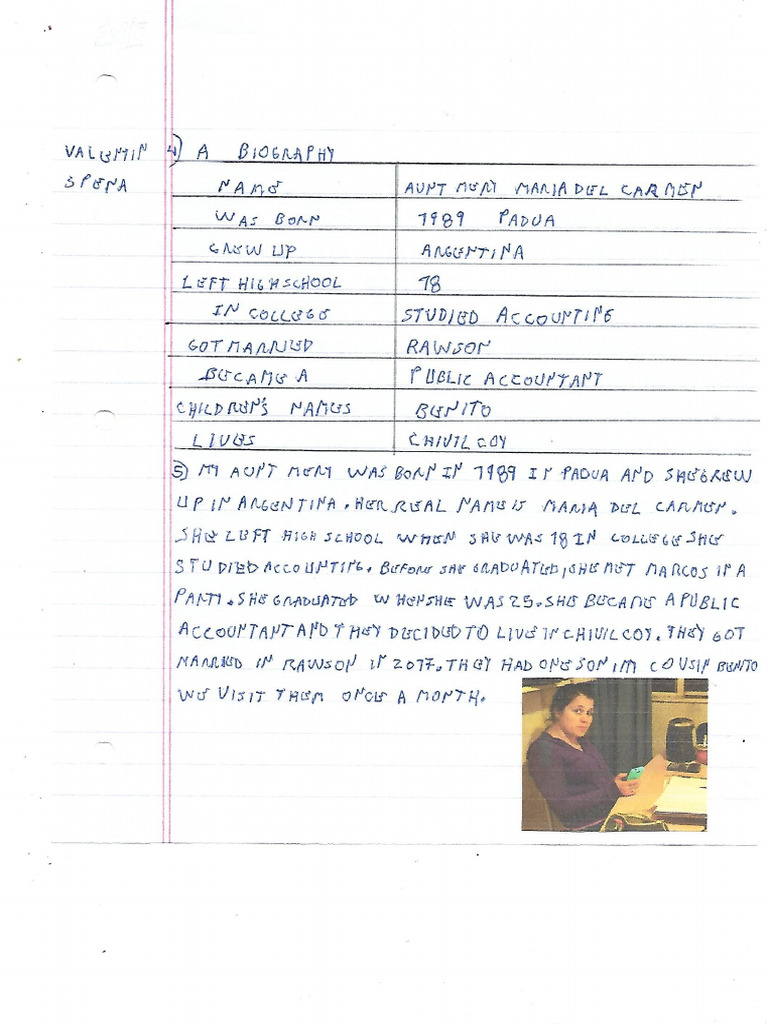 VALENTIN 4) A BIOGRAPHY
SPENA
NAME AUNT MERY MARIA DEL CARMEN
WAS BORN 1989 PADUA
GREW UP ARGENTINA
LEFT HIGH SCHOOL 18
IN COLLEGE STUDIED ACCOUNTING
GOT MARRIED RAWSON
BECAME A PUBLIC ACCOUNTANT
CHILDREN'S NAMES BENITO
LIVES CHIVILCOY
5) MY AUNT MERY WAS BORN IN 1989 IN PADUA AND SHE GREW
UP IN ARGENTINA. HER REAL NAME IS MARIA DEL CARMEN.
SHE LEFT HIGH SCHOOL WHEN SHE WAS 18 IN COLLEGE SHE
STUDIED ACCOUNTING. BEFORE SHE GRADUATED, SHE MET MARCOS IN A
PARTY. SHE GRADUATED WHEN SHE WAS 25. SHE BECAME A PUBLIC
ACCOUNTANT AND THEY DECIDED TO LIVE IN CHIVILCOY. THEY GOT
MARRIED IN RAWSON IN 2017. THEY HAD ONE SON COUSIN BENITO
WE VISIT THEM ONCE A MONTH.